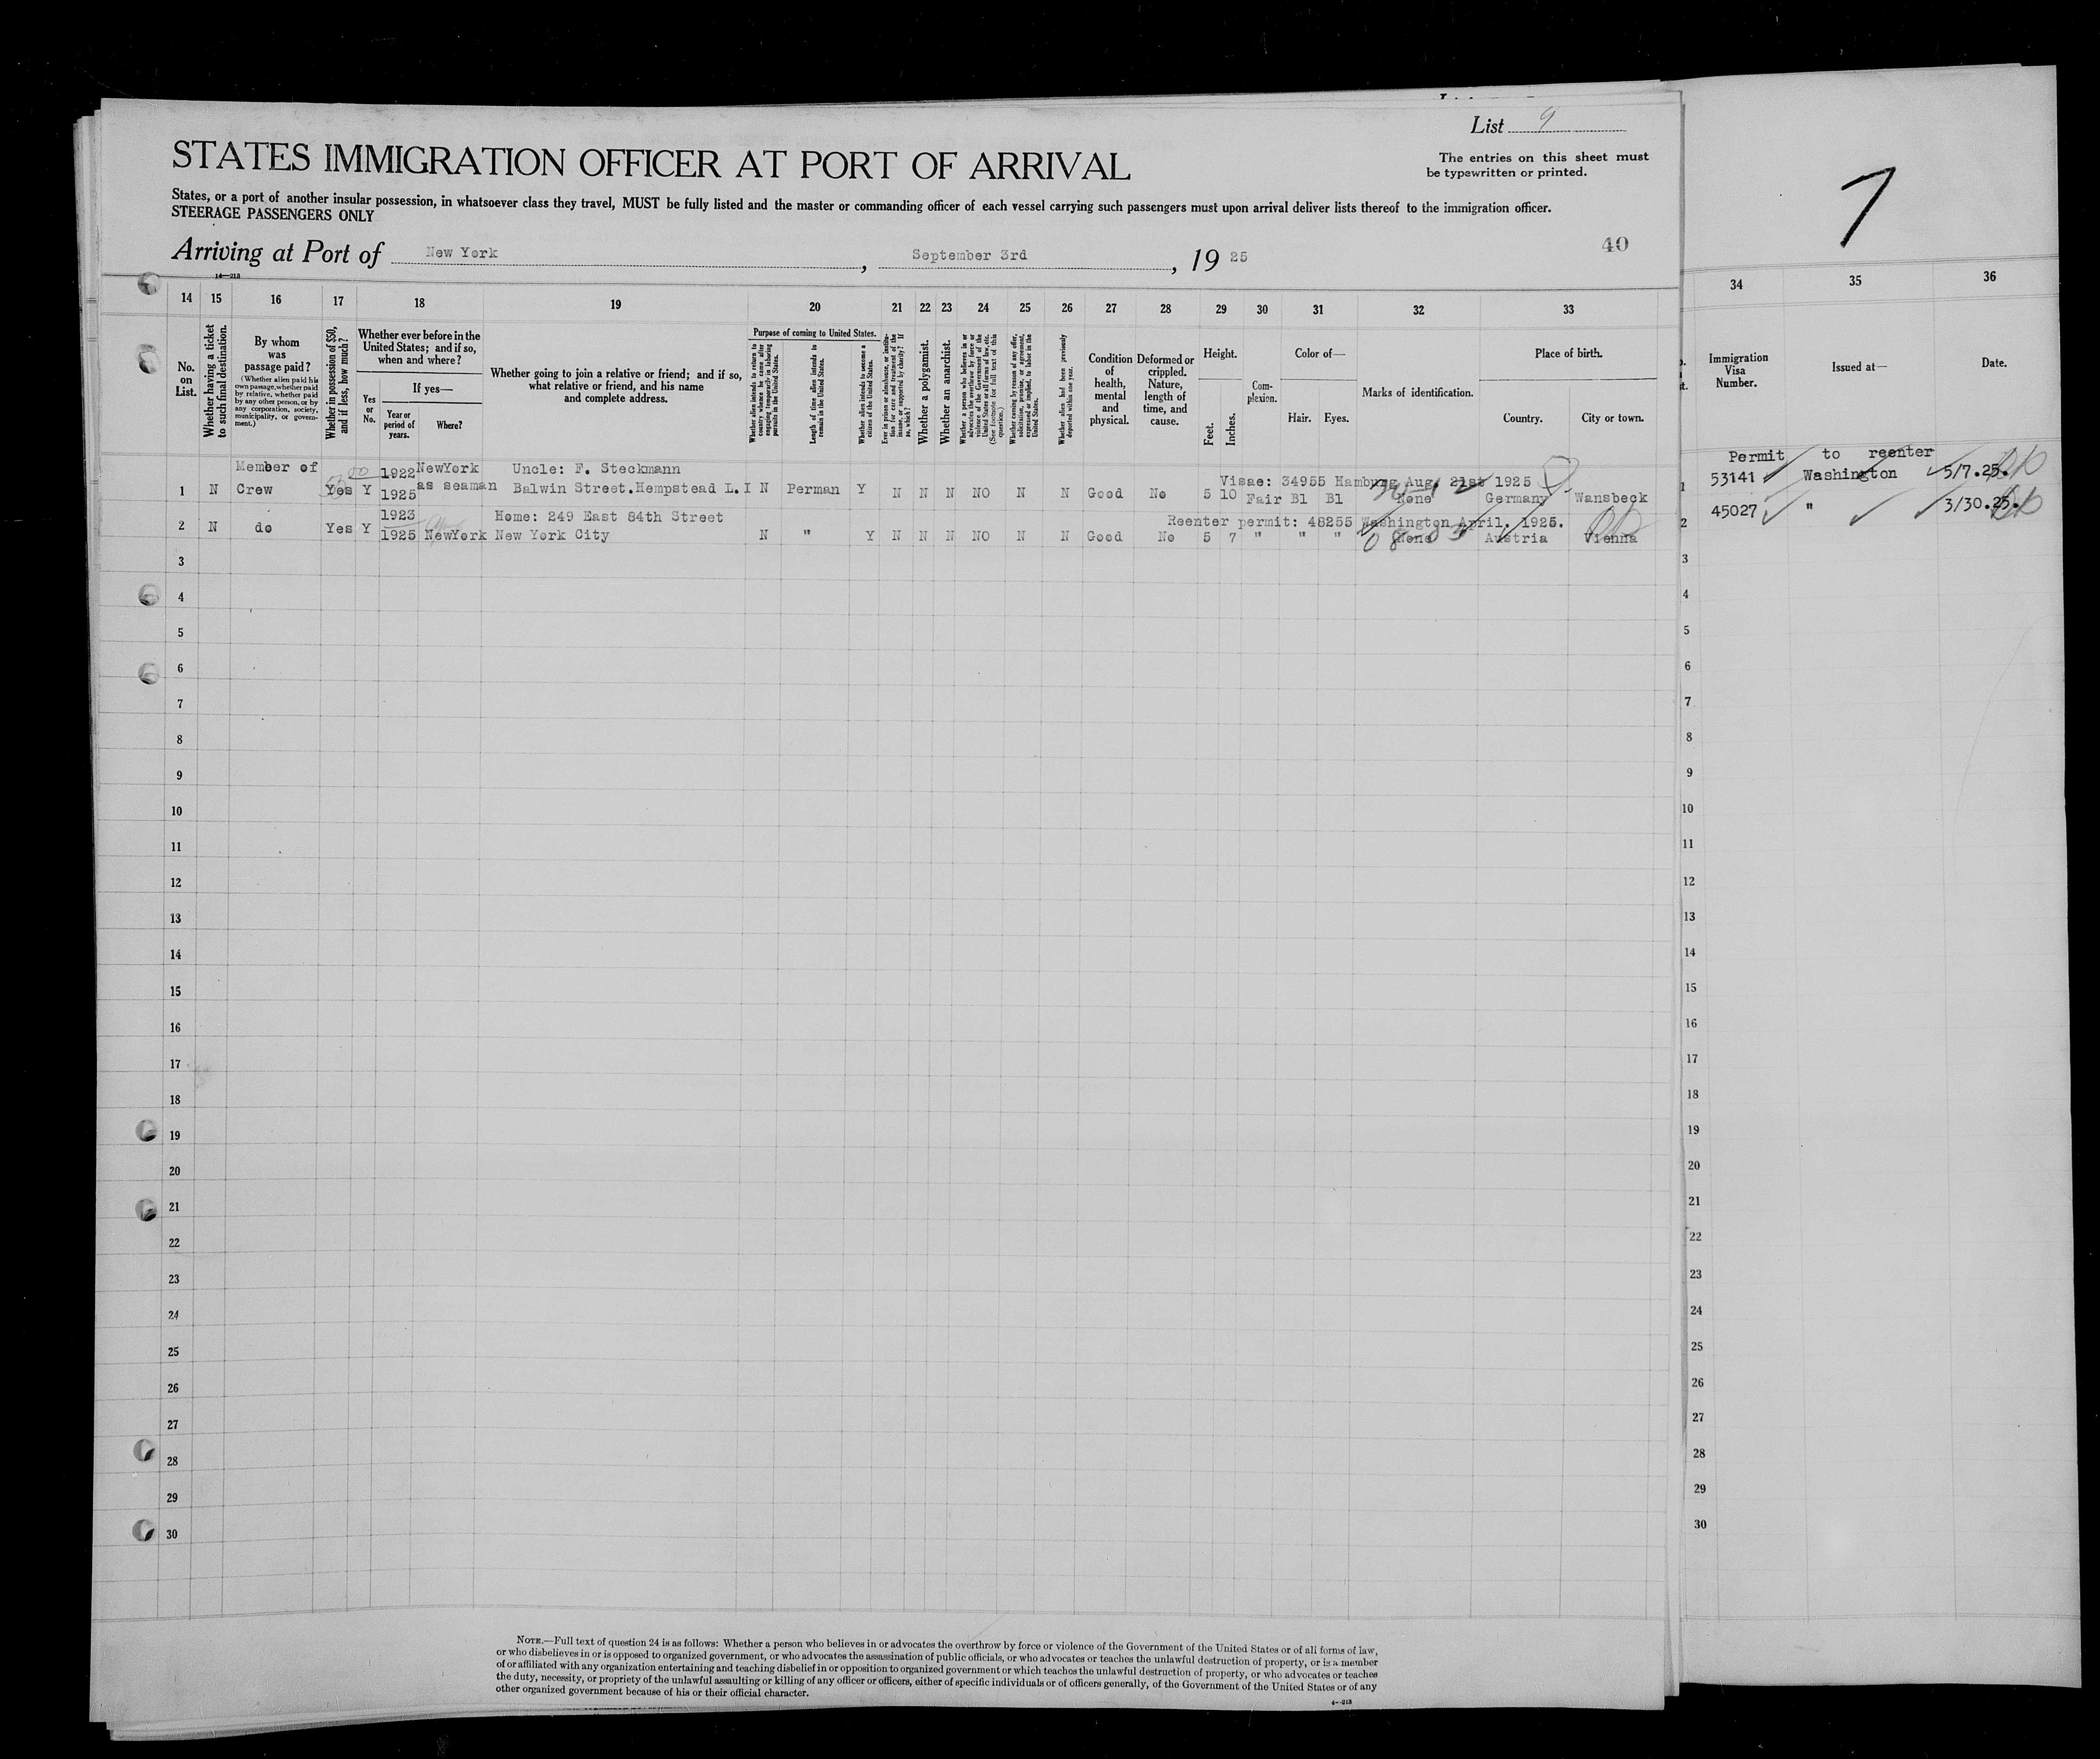 List 9
STATES IMMIGRATION OFFICER AT PORT OF ARRIVAL
The entries on this sheet must
be typewritten or printed.
States, or a port of another insular possession, in whatsoever class they travel, MUST be fully listed and the master or commanding officer of each vessel carrying such passengers must upon arrival deliver lists thereof to the immigration officer.
STEERAGE PASSENGERS ONLY
Arriving at Port of New York, September 3rd, 19 25
40
14—213
14 15 16 17 18 19 20 21 22 23 24 25 26 27 28 29 30 31 32 33
No. on List.
Whether having a ticket to such final destination.
By whom was passage paid?
(Whether alien paid his own passage, whether paid by relative, whether paid by any other person, or by any corporation, society, municipality, or government.)
Whether in possession of $50, and if less, how much?
Whether ever before in the United States; and if so, when and where?
Yes or No.
If yes—
Year or period of years.
Where?
Whether going to join a relative or friend; and if so, what relative or friend, and his name and complete address.
Purpose of coming to United States.
Whether alien intends to return to country whence he came after engaging temporarily in laboring pursuits in the United States.
Length of time alien intends to remain in the United States.
Whether alien intends to become a citizen of the United States.
Ever in prison or almshouse, or institution for care and treatment of the insane, or supported by charity? If so, which?
Whether a polygamist.
Whether an anarchist.
Whether a person who believes in or advocates the overthrow by force or violence of the Government of the United States or all forms of law, etc. (See footnote for full text of this question.)
Whether coming by reason of any offer, solicitation, promise, or agreement, expressed or implied, to labor in the United States.
Whether alien had been previously deported within one year.
Condition of health, mental and physical.
Deformed or crippled. Nature, length of time, and cause.
Height.
Feet. Inches.
Complexion.
Color of—
Hair. Eyes.
Marks of identification.
Place of birth.
Country. City or town.
Member of 1922 NewYork Uncle: F. Steckmann
Visae: 34955 Hamburg Aug. 21st 1925
1 N Crew Yes Y 1925 as seaman Balwin Street.Hempstead L.I N Perman Y N N N NO N N Good No 5 10 Fair Bl Bl None Germany Wansbeck
1923 Home: 249 East 84th Street
Reenter permit: 48255 Washington April. 1925.
2 N do Yes Y 1925 NewYork New York City N " Y N N N NO N N Good No 5 7 " " " None Austria Vienna
3
4
5
6
7
8
9
10
11
12
13
14
15
16
17
18
19
20
21
22
23
24
25
26
27
28
29
30
NOTE.—Full text of question 24 is as follows: Whether a person who believes in or advocates the overthrow by force or violence of the Government of the United States or of all forms of law,
or who disbelieves in or is opposed to organized government, or who advocates the assassination of public officials, or who advocates or teaches the unlawful destruction of property, or is a member
of or affiliated with any organization entertaining and teaching disbelief in or opposition to organized government or which teaches the unlawful destruction of property, or who advocates or teaches
the duty, necessity, or propriety of the unlawful assaulting or killing of any officer or officers, either of specific individuals or of officers generally, of the Government of the United States or of any
other organized government because of his or their official character.
7
34 35 36
Immigration Visa Number.
Issued at—
Date.
Permit to reenter
1 53141 Washington 5/7.25.
2 45027 " 3/30.25.
3
4
5
6
7
8
9
10
11
12
13
14
15
16
17
18
19
20
21
22
23
24
25
26
27
28
29
30